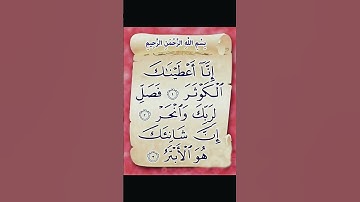 بِسْمِ اللَّهِ الرَّحْمَنِ الرَّحِيمِ
إِنَّآ أَعْطَيْنَٰكَ
ٱلْكَوْثَرَ ١ فَصَلِّ
لِرَبِّكَ وَٱنْحَرْ ٢
إِنَّ شَانِئَكَ
هُوَ ٱلْأَبْتَرُ ٣